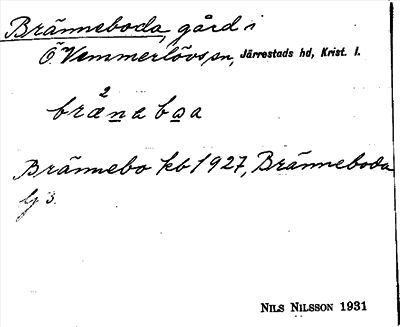 Bränneboda, gård i
Ö. Vemmerlövs sn, Järrestads hd, Krist. l.
2
bræneboa
Brännebo kb 1927, Bränneboda
lj 3.
NILS NILSSON 1931